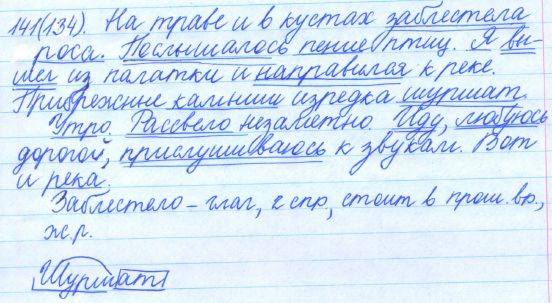 141(134). На траве и в кустах заблестела
роса. Послышалось пение птиц. Я вы-
шел из палатки и направился к реке.
Прибрежные камыши изредка шуршат.
Утро. Рассвело незаметно. Иду, любуюсь
дорогой, прислушиваюсь к звукам. Вот
и река.
Заблестело – глаг, 2 спр, стоит в прош. вр.,
ж.р.
Шуршат